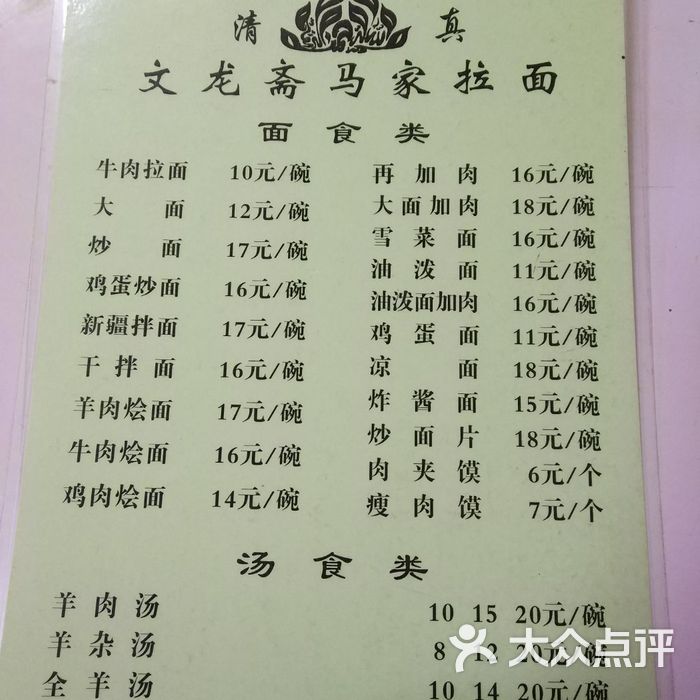 清 真
文龙斋马家拉面
面食类
牛肉拉面 10元/碗
大面 12元/碗
炒面 17元/碗
鸡蛋炒面 16元/碗
新疆拌面 17元/碗
干拌面 16元/碗
羊肉烩面 17元/碗
牛肉烩面 16元/碗
鸡肉烩面 14元/碗
再加肉 16元/碗
大面加肉 18元/碗
雪菜面 16元/碗
油泼面 11元/碗
油泼面加肉 16元/碗
鸡蛋面 11元/碗
凉面 18元/碗
炸酱面 15元/碗
炒面片 18元/碗
肉夹馍 6元/个
瘦肉馍 7元/个
汤食类
羊肉汤 10 15 20元/碗
羊杂汤 8 12 20元/碗
全羊汤 10 14 20元/碗
大众点评